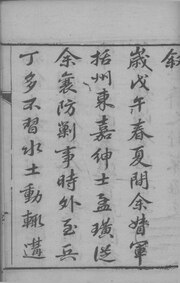 敘
歲戊午春夏間余督軍
括州東嘉紳士孟璜從
余襄防剿事時外至兵
丁多不習水土動輒遘